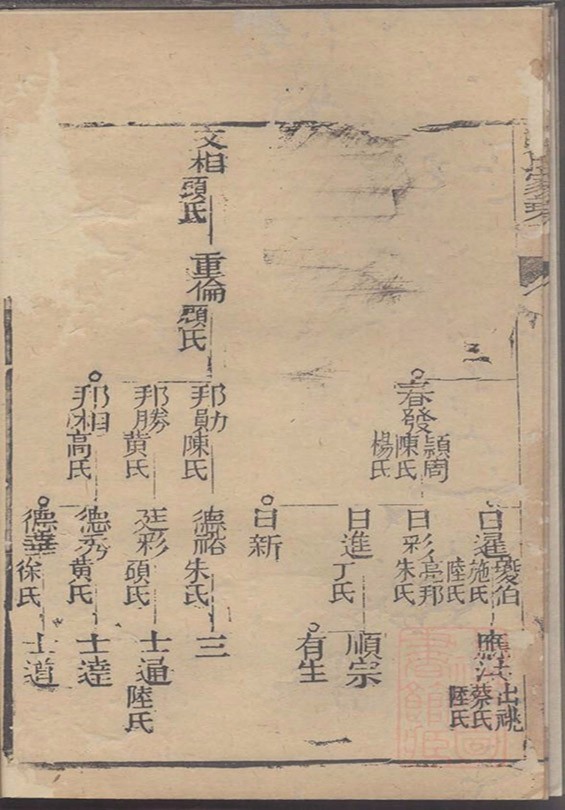 三
春發 頴周
陳氏
楊氏
日暹 燮伯
施氏
陸氏
日彩 亮邦
朱氏
日進
丁氏
日新
應法 出祧
蔡氏
陸氏
順宗
有生
一
文相
顧氏
重倫
顧氏
邦勛
陳氏
邦勝
黄氏
邦相
高氏
德裕
朱氏
廷彩
碩氏
德秀
黄氏
德華
徐氏
三
士通
陸氏
士達
士道